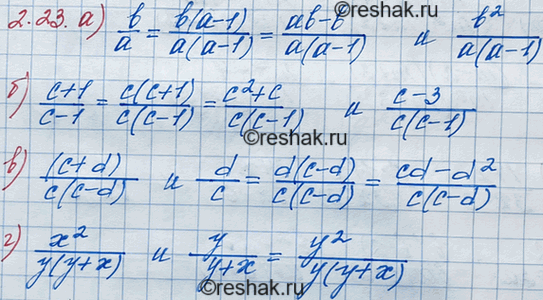 ©reshak.ru
2.23. а) b/a = b(a-1)/a(a-1) = ab-b/a(a-1) и b²/a(a-1)
б) c+1/c-1 = c(c+1)/c(c-1) = c²+c/c(c-1) и c-3/c(c-1)
в) (c+d)/c(c-d) и d/c = d(c-d)/c(c-d) = cd-d²/c(c-d)
г) x²/y(y+x) и y/y+x = y²/y(y+x)
©reshak.ru